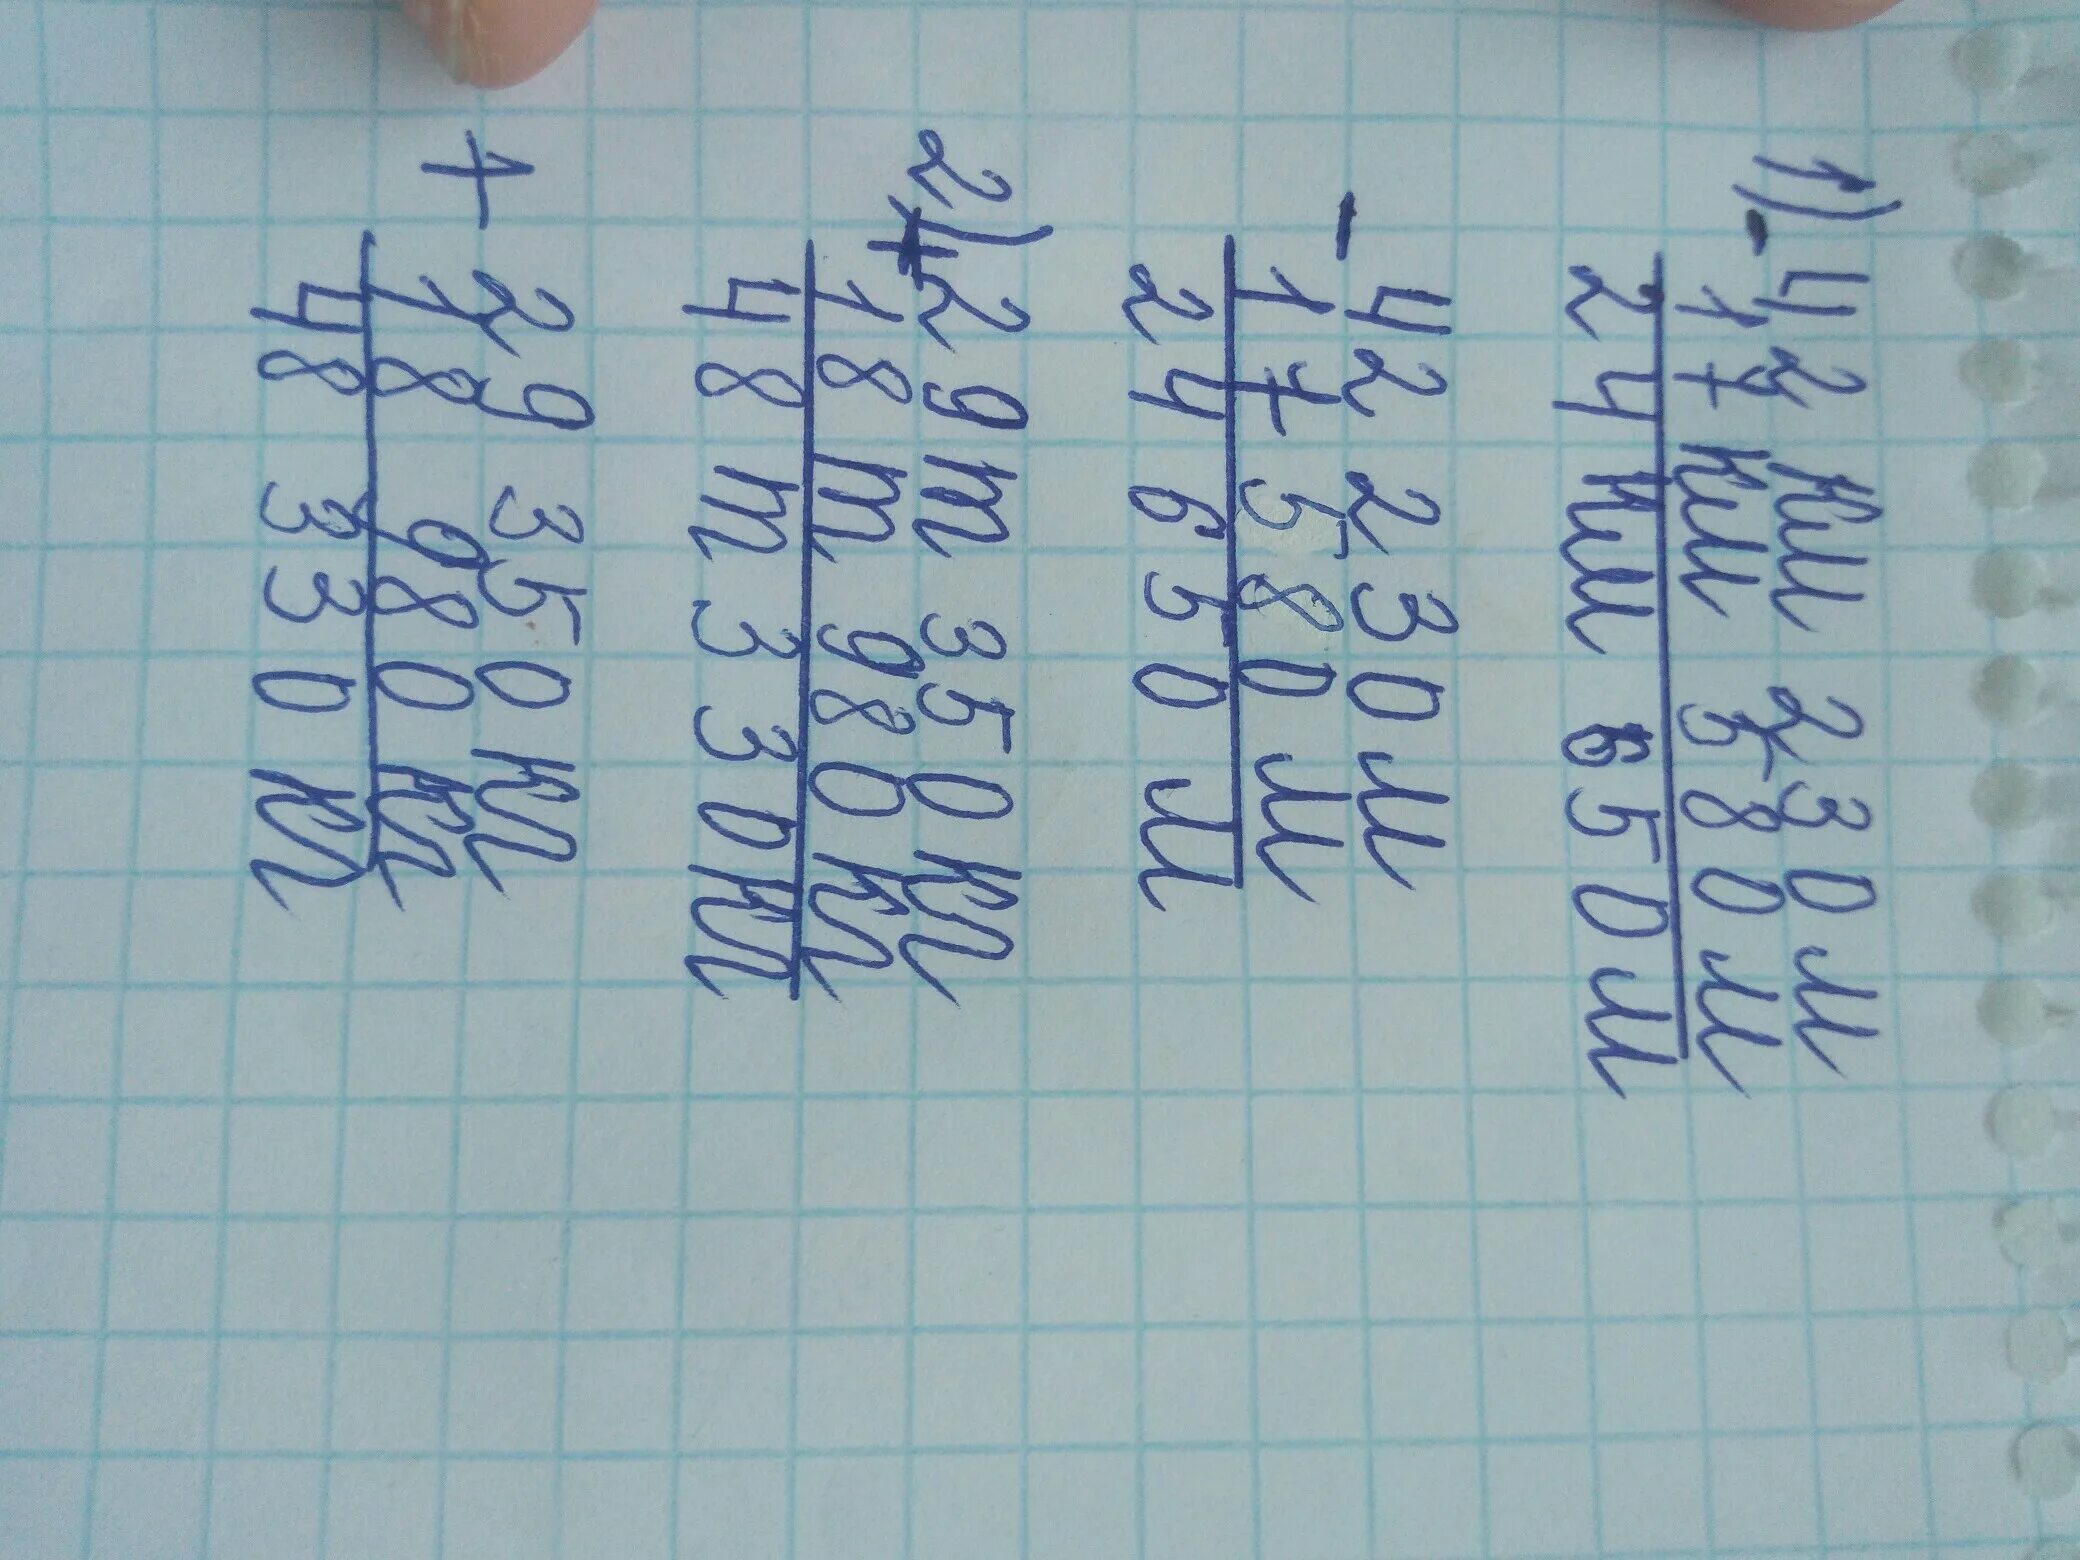 1) - 42 км 230 м
17 км 580 м
24 км 650 м
- 42 230 м
17 580 м
24 650 м
2) + 29 т 350 кг
18 т 980 кг
48 т 330 кг
+ 29 350 кг
18 980 кг
48 330 кг